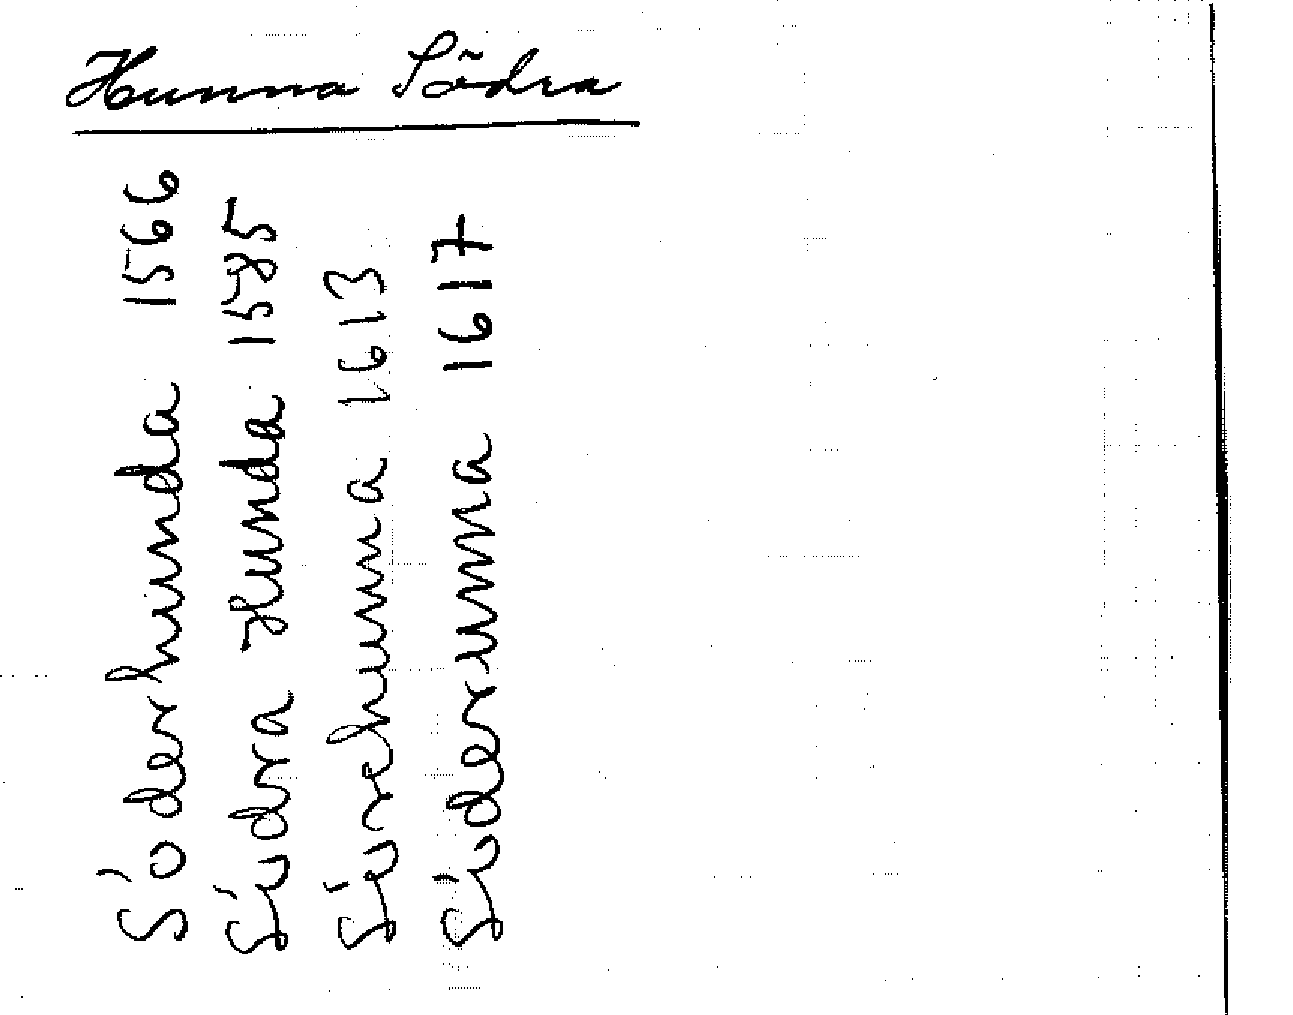 Hunna Södra
Söderhunda 1566
Sudra Hunda 1585
Surehunna 1613
Suderunna 1617